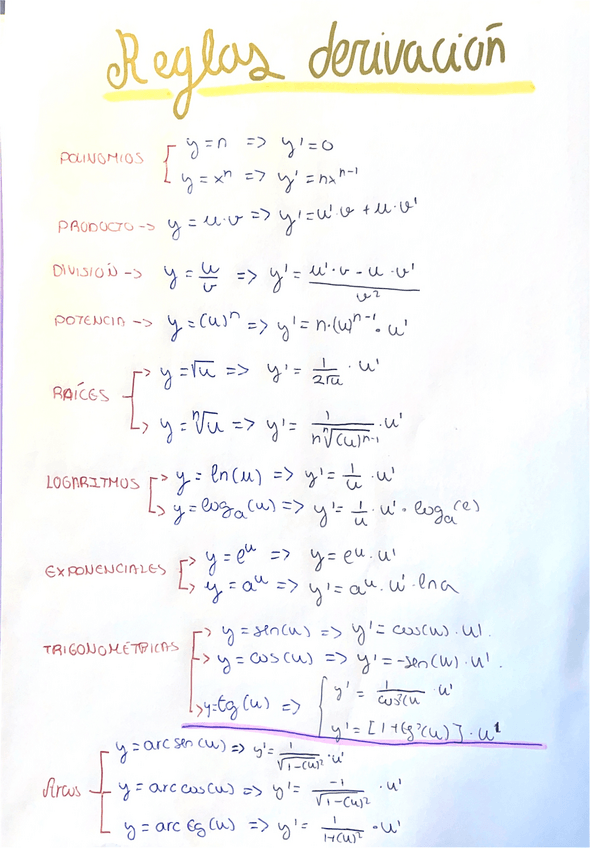 Reglas derivación
POLINOMIOS
y = n => y' = 0
y = xⁿ => y' = nxⁿ⁻¹
PRODUCTO -> y = u·v => y' = u'·v + u·v'
DIVISIÓN -> y = u/v => y' = (u'·v - u·v')/v²
POTENCIA -> y = (u)ⁿ => y' = n·(u)ⁿ⁻¹·u'
RAÍCES
-> y = √u => y' = 1/(2√u) · u'
-> y = ⁿ√u => y' = 1/(n ⁿ√(u)ⁿ⁻¹) · u'
LOGARITMOS
-> y = ln(u) => y' = 1/u · u'
-> y = logₐ(u) => y' = 1/u · u' · logₐ(e)
EXPONENCIALES
-> y = eᵘ => y = eᵘ · u'
-> y = aᵘ => y' = aᵘ · u' · ln a
TRIGONOMÉTRICAS
-> y = sen(u) => y' = cos(u) · u'.
-> y = cos(u) => y' = -sen(u) · u'.
-> y = tg(u) =>
y' = 1/(cos²(u) · u'
y' = [1+tg²(u)] · u'
Arcos
y = arc sen(u) => y' = 1/√(1-(u)²) · u'
y = arc cos(u) => y' = -1/√(1-(u)²) · u'
y = arc tg(u) => y' = 1/(1+(u)²) · u'